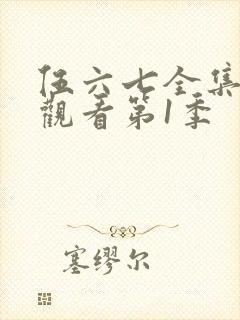 伍六七全集
觀看第1季
塞缪尔